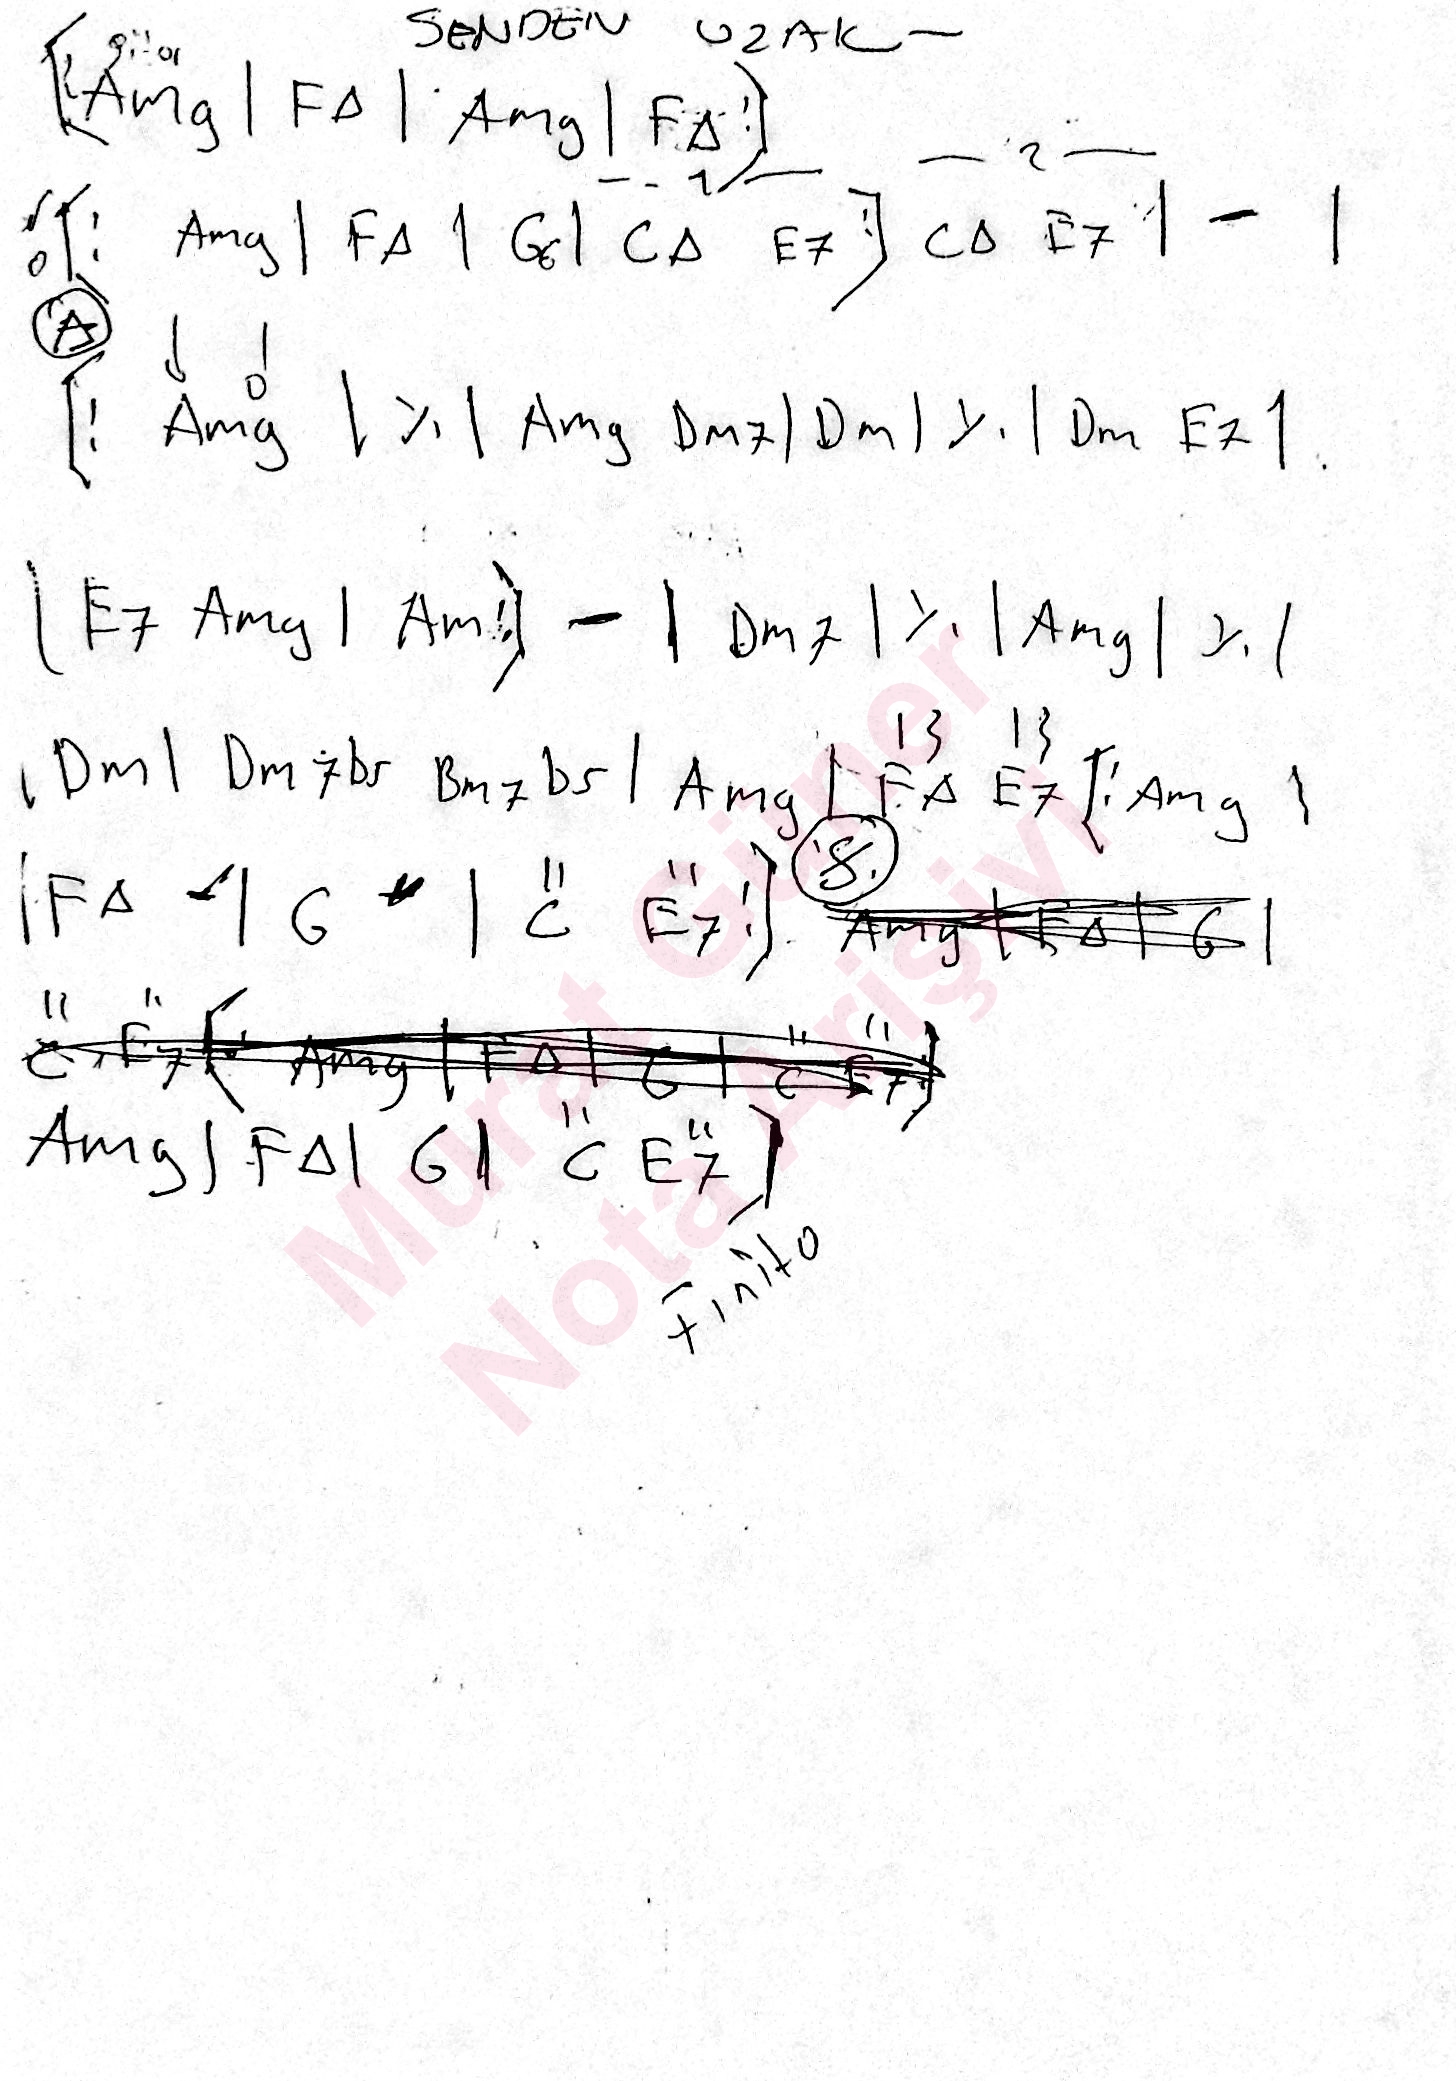 SENDEN UZAK —
gitar
[: Am9 | F∆ | Am9 | F∆ :]
— 1 — — 2 —
[: Am9 | F∆ | G6 | C∆ E7 :] C∆ E7 | - |
A
[: Am9 | ٪ | Am9 Dm7 | Dm | ٪ | Dm E7 |
| E7 Am9 | Am :] - | Dm7 | ٪ | Am9 | ٪ |
| Dm | Dm7b5 Bm7b5 | Am9 | F∆ E7 [: Am9 |
| F∆ | G | C E7 :] Am9 | F∆ | G |
C E7 [: Am9 | F∆ | G | C E7 :]
Am9 | F∆ | G | C E7 ]
Finito
Murat Güner
Nota Arşivi